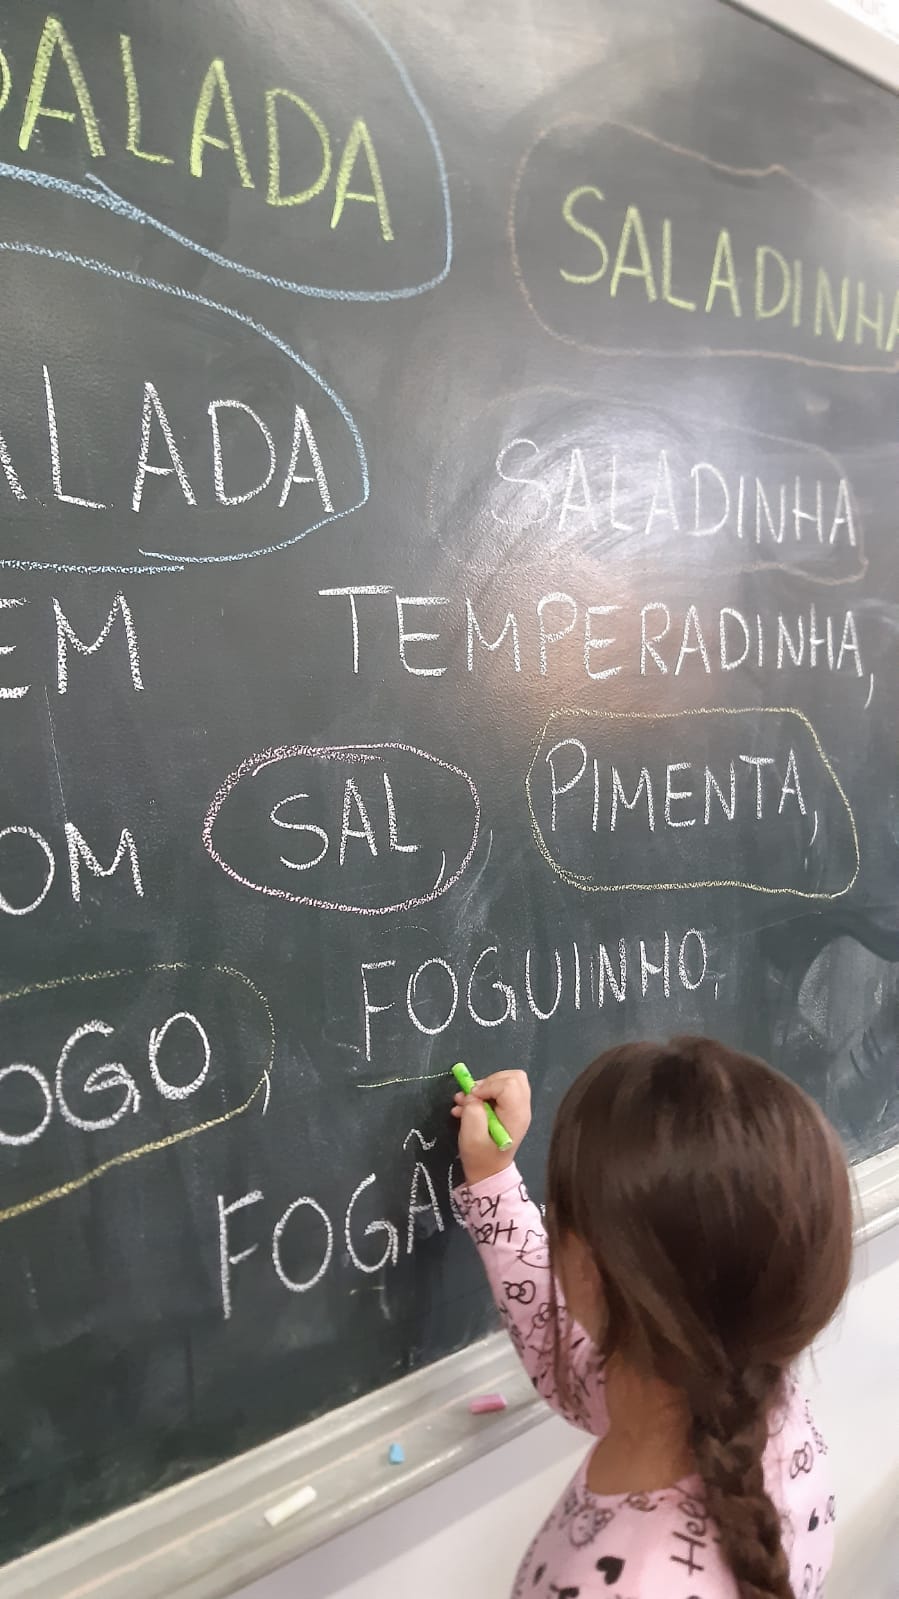 SALADA SALADINHA
SALADA SALADINHA
EM TEMPERADINHA,
OM SAL, PIMENTA,
OGO, FOGUINHO,
FOGÃO